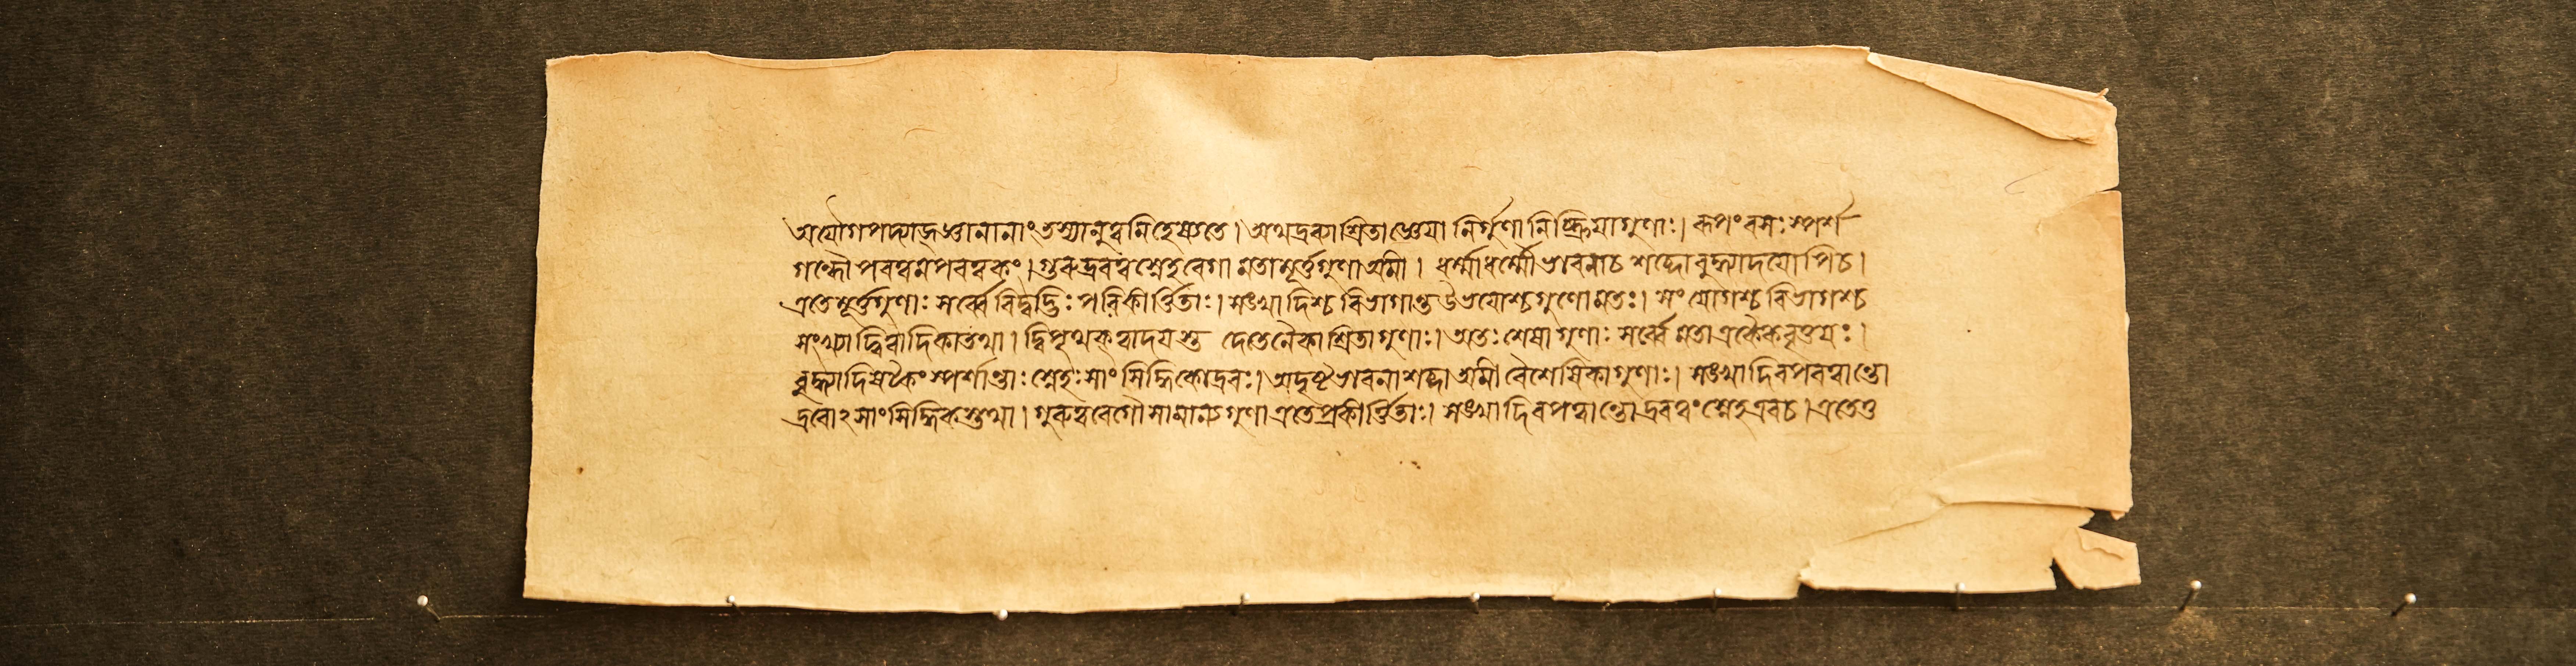 অযৌগপদ্যাজ্জ্ঞানানাং তস্যানুত্বমিহেষ্যতে। অথ দ্রব্যাশ্রিতা জ্ঞেয়া নির্গুণা নিষ্ক্রিয়া গুণাঃ। রূপং রসঃ স্পর্শ
গন্ধৌ পরত্বমপরত্বকং। গুরুদ্রবত্বস্নেহবেগা মতা মূর্ত্তগুণা অমী। ধর্ম্মাধর্ম্মৌ ভাবনাচ শব্দো বুদ্ধ্যাদয়োপিচ।
এতেমূর্ত্তগুণাঃ সর্ব্বে বিদ্বদ্ভিঃ পরিকীর্ত্তিতাঃ। সঙ্খ্যাদিশ্চ বিভাগান্ত উভয়োশ্চগুণোমতঃ। সংযোগশ্চ বিভাগশ্চ
সংখ্যাদ্বিত্বাদিকাতথা। দ্বিপৃথক্ত্বাদয়স্তু দেতেনৈকাশ্রিতাগুণাঃ। অতঃ শেষাগুণাঃ সর্ব্বে মতা একৈকবৃত্তয়ঃ।
বুদ্ধ্যাদিষট্কং স্পর্শান্তাঃ স্নেহঃ সাংসিদ্ধিকোদ্রবঃ। অদৃষ্টভাবনাশব্দা অমী বৈশেষিকাগুণাঃ। সঙ্খ্যাদিরপরত্বান্তো
দ্রবোঽসাংসিদ্ধিকস্তথা। গুরুত্ববেগৌ সামান্যগুণা এতে প্রকীর্ত্তিতাঃ। সঙ্খ্যাদিরপরত্বান্তো দ্রবত্বং স্নেহ এবচ। এতেতু